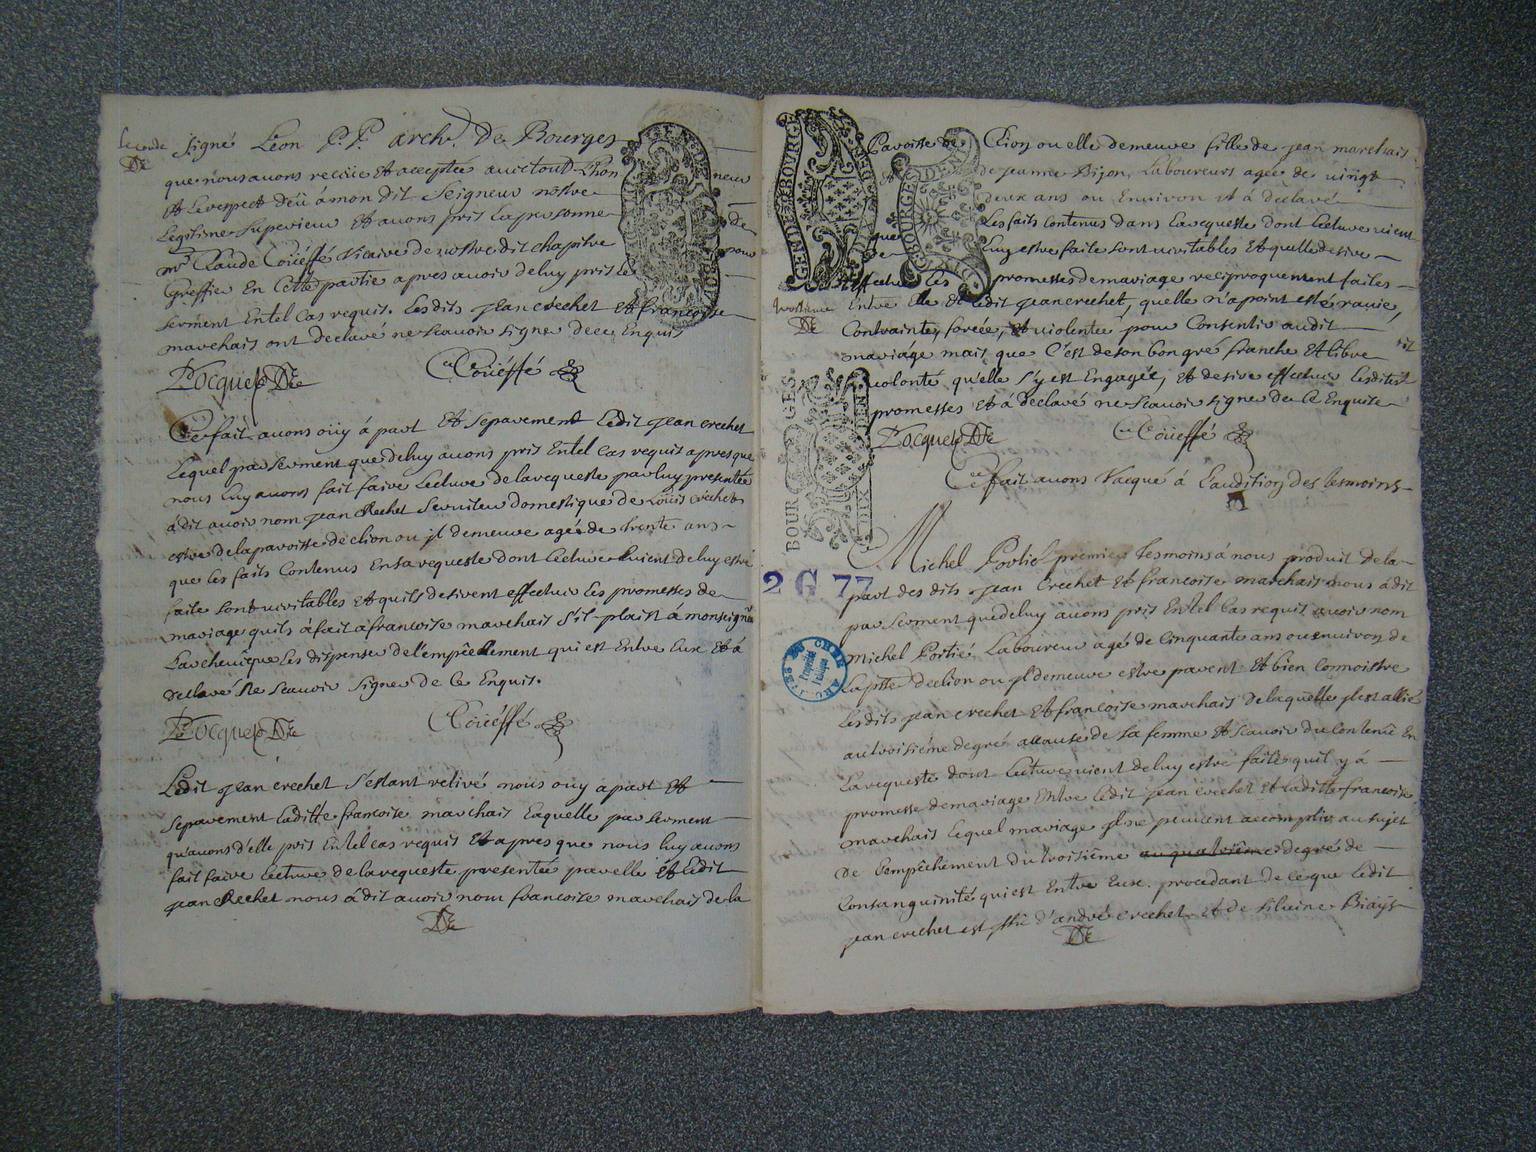 seconde
signé Léon P. P. arch. De Bourges
que nous avons recüe Et acceptée avec tout L'hon neur
Et Lerespect deü à mon dit Seigneur nostre
Legitime superieur Et avons pris La personne de
mre Claude Coüeffé Vicaire de nostre dit chapitre pour
Greffier En Cette partie apres avoir deluy pris le
serment En tel Cas requis. Lesdits Jean crechet Et francoise
marchais ont declaré ne scauoir signer dece Enquis
Pocquet Coüeffé
Ce fait avons oüy à part Et separement Ledit Jean crechet
Lequel par serment que deluy avons pris En tel Cas requis apres que
nous Luy avons fait faire Lecture dela requeste par luy presentée
à dit avoir nom Jean Crechet serviteur domestique de Loüis crechet
estre dela paroisse de clion ou jl demeure agé de trente ans
que les faits Contenus En la requeste dont Lecture vient de luy estre
faite sont veritables Et quils desirent effectuer Les promesses de
mariage quils à fait à francoise marchais s'il plaist à monseigneur
L'archeuêque Les dispenser de l'empêchement qui est Entre Eux Et à
declaré Ne scauoir signer de ce Enquis.
Pocquet Coüeffé
Ledit Jean crechet s'estant retiré nous ouy à part Et
separement Laditte francoise marchais Laquelle par serment
qu'avons d'elle pris En tel cas requis Et apres que nous luy avons
fait faire Lecture de la requeste presentée par elle Et Ledit
Jean Crechet nous à dit avoir nom francoise marchais de la
GE DE BOURGE
BOURGE
Paroisse de Clion ou elle demeure fille de Jean marchais
de Jeanne Bijon, Laboureurs agée de vingt
deux ans ou Environ Et à declaré
que Les faits Contenus dans La requeste dont Lecture vient
de Luy estre faite sont veritables Et quelle desire
effectuer Les promesses de mariage reciproquement faites
troisiême
Entre Elle Et Ledit Jean crechet, quelle n'a point esté ravie,
Contrainte, forcée, Et violentée pour Consentir audit
mariage mais que C'est de son bon gré franche Et libre
volonté qu'elle s'y est Engagée, Et desire effectuer Lesdites
promesses Et à declaré ne scauoir signer de ce Enquise
Pocquet Coüeffé
BOUR GES.
DIX DEN
Ce fait avons Vacqué à L'audition des tesmoins
Michel Portié premier tesmoins à nous produit de la
2 G 77
part des dits Jean Crechet Et francoise marchais nous à dit
par serment que deluy avons pris En tel Cas requis avoir nom
Michel Portié Laboureur agé de Cinquante ans ou environ de
La ptte de clion ou jl demeure estre parent Et bien Connoistre
Lesdits Jean crechet Et francoise marchais De laquelle jl est allié
au troisiéme degré acause de sa femme Et scauoir du Contenû En
La requeste dont Lecture vient deluy estre faite quil y à
promesse de mariage Entre Ledit Jean crechet Et Laditte francoise
marchais Lequel mariage jls ne peuvent accomplir au sujet
de L'empêchement du troisiême au quatriême degré de
Consanguinité qui est Entre Eux. procedant de ce que Ledit
Jean crechet est fils d'andré crechet Et de silvine Biays